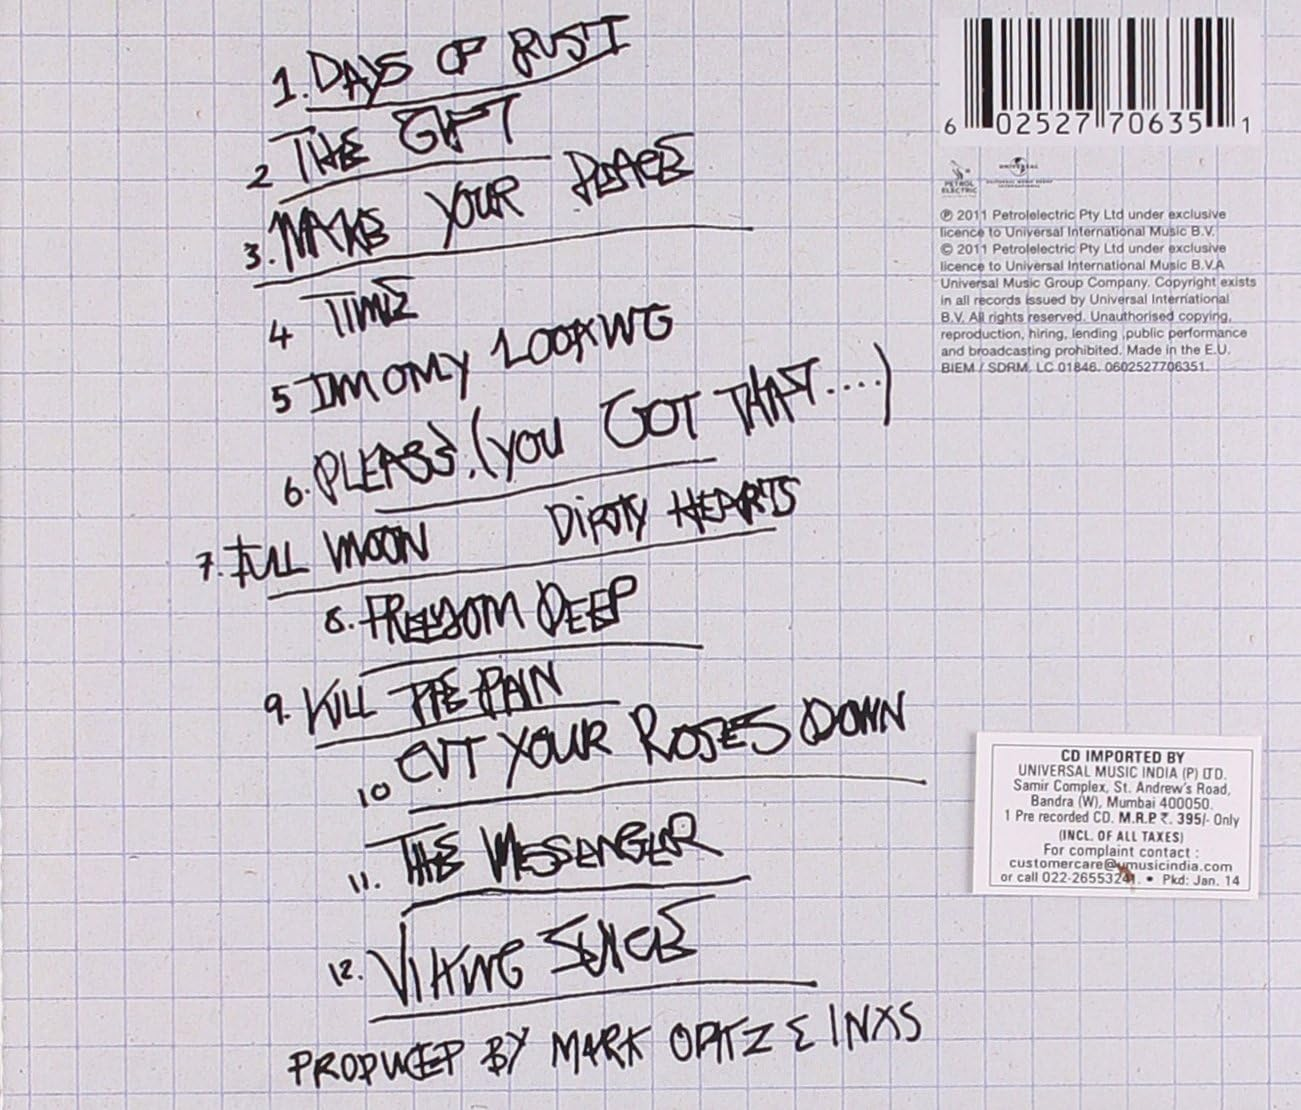 1. DAYS OF RUST
2 THE GIFT
3. MAKE YOUR PEACE
4 TIME
5 IM ONLY LOOKING
6. PLEASE. (YOU GOT THAT....)
7. FULL MOON DIRTY HEARTS
8. FREEDOM DEEP
9. KILL THE PAIN
10 CUT YOUR ROSES DOWN
11. THE MESSENGER
12. VIKING JUICE
PRODUCED BY MARK OPITZ & INXS
6 02527 70635 1
PETROL
ELECTRIC
UNIVERSAL
UNIVERSAL MUSIC GROUP
INTERNATIONAL
℗ 2011 Petrolelectric Pty Ltd under exclusive
licence to Universal International Music B.V.
© 2011 Petrolelectric Pty Ltd under exclusive
licence to Universal International Music B.V.A
Universal Music Group Company. Copyright exists
in all records issued by Universal International
B.V. All rights reserved. Unauthorised copying,
reproduction, hiring, lending ,public performance
and broadcasting prohibited. Made in the E.U.
BIEM / SDRM. LC 01846. 0602527706351.
CD IMPORTED BY
UNIVERSAL MUSIC INDIA (P) LTD.
Samir Complex, St. Andrew's Road,
Bandra (W), Mumbai 400050.
1 Pre recorded CD. M.R.P. ₹. 395/- Only
(INCL. OF ALL TAXES)
For complaint contact :
customercare@umusicindia.com
or call 022-26553241. • Pkd: Jan. 14